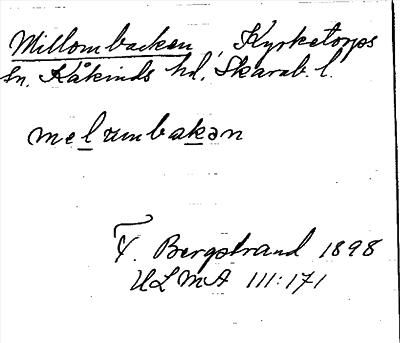 Millombacken, Kyrketorps
sn. Kåkinds hd, Skarab. l.
melumbakən
F. Bergstrand 1898
ULMA 111:171